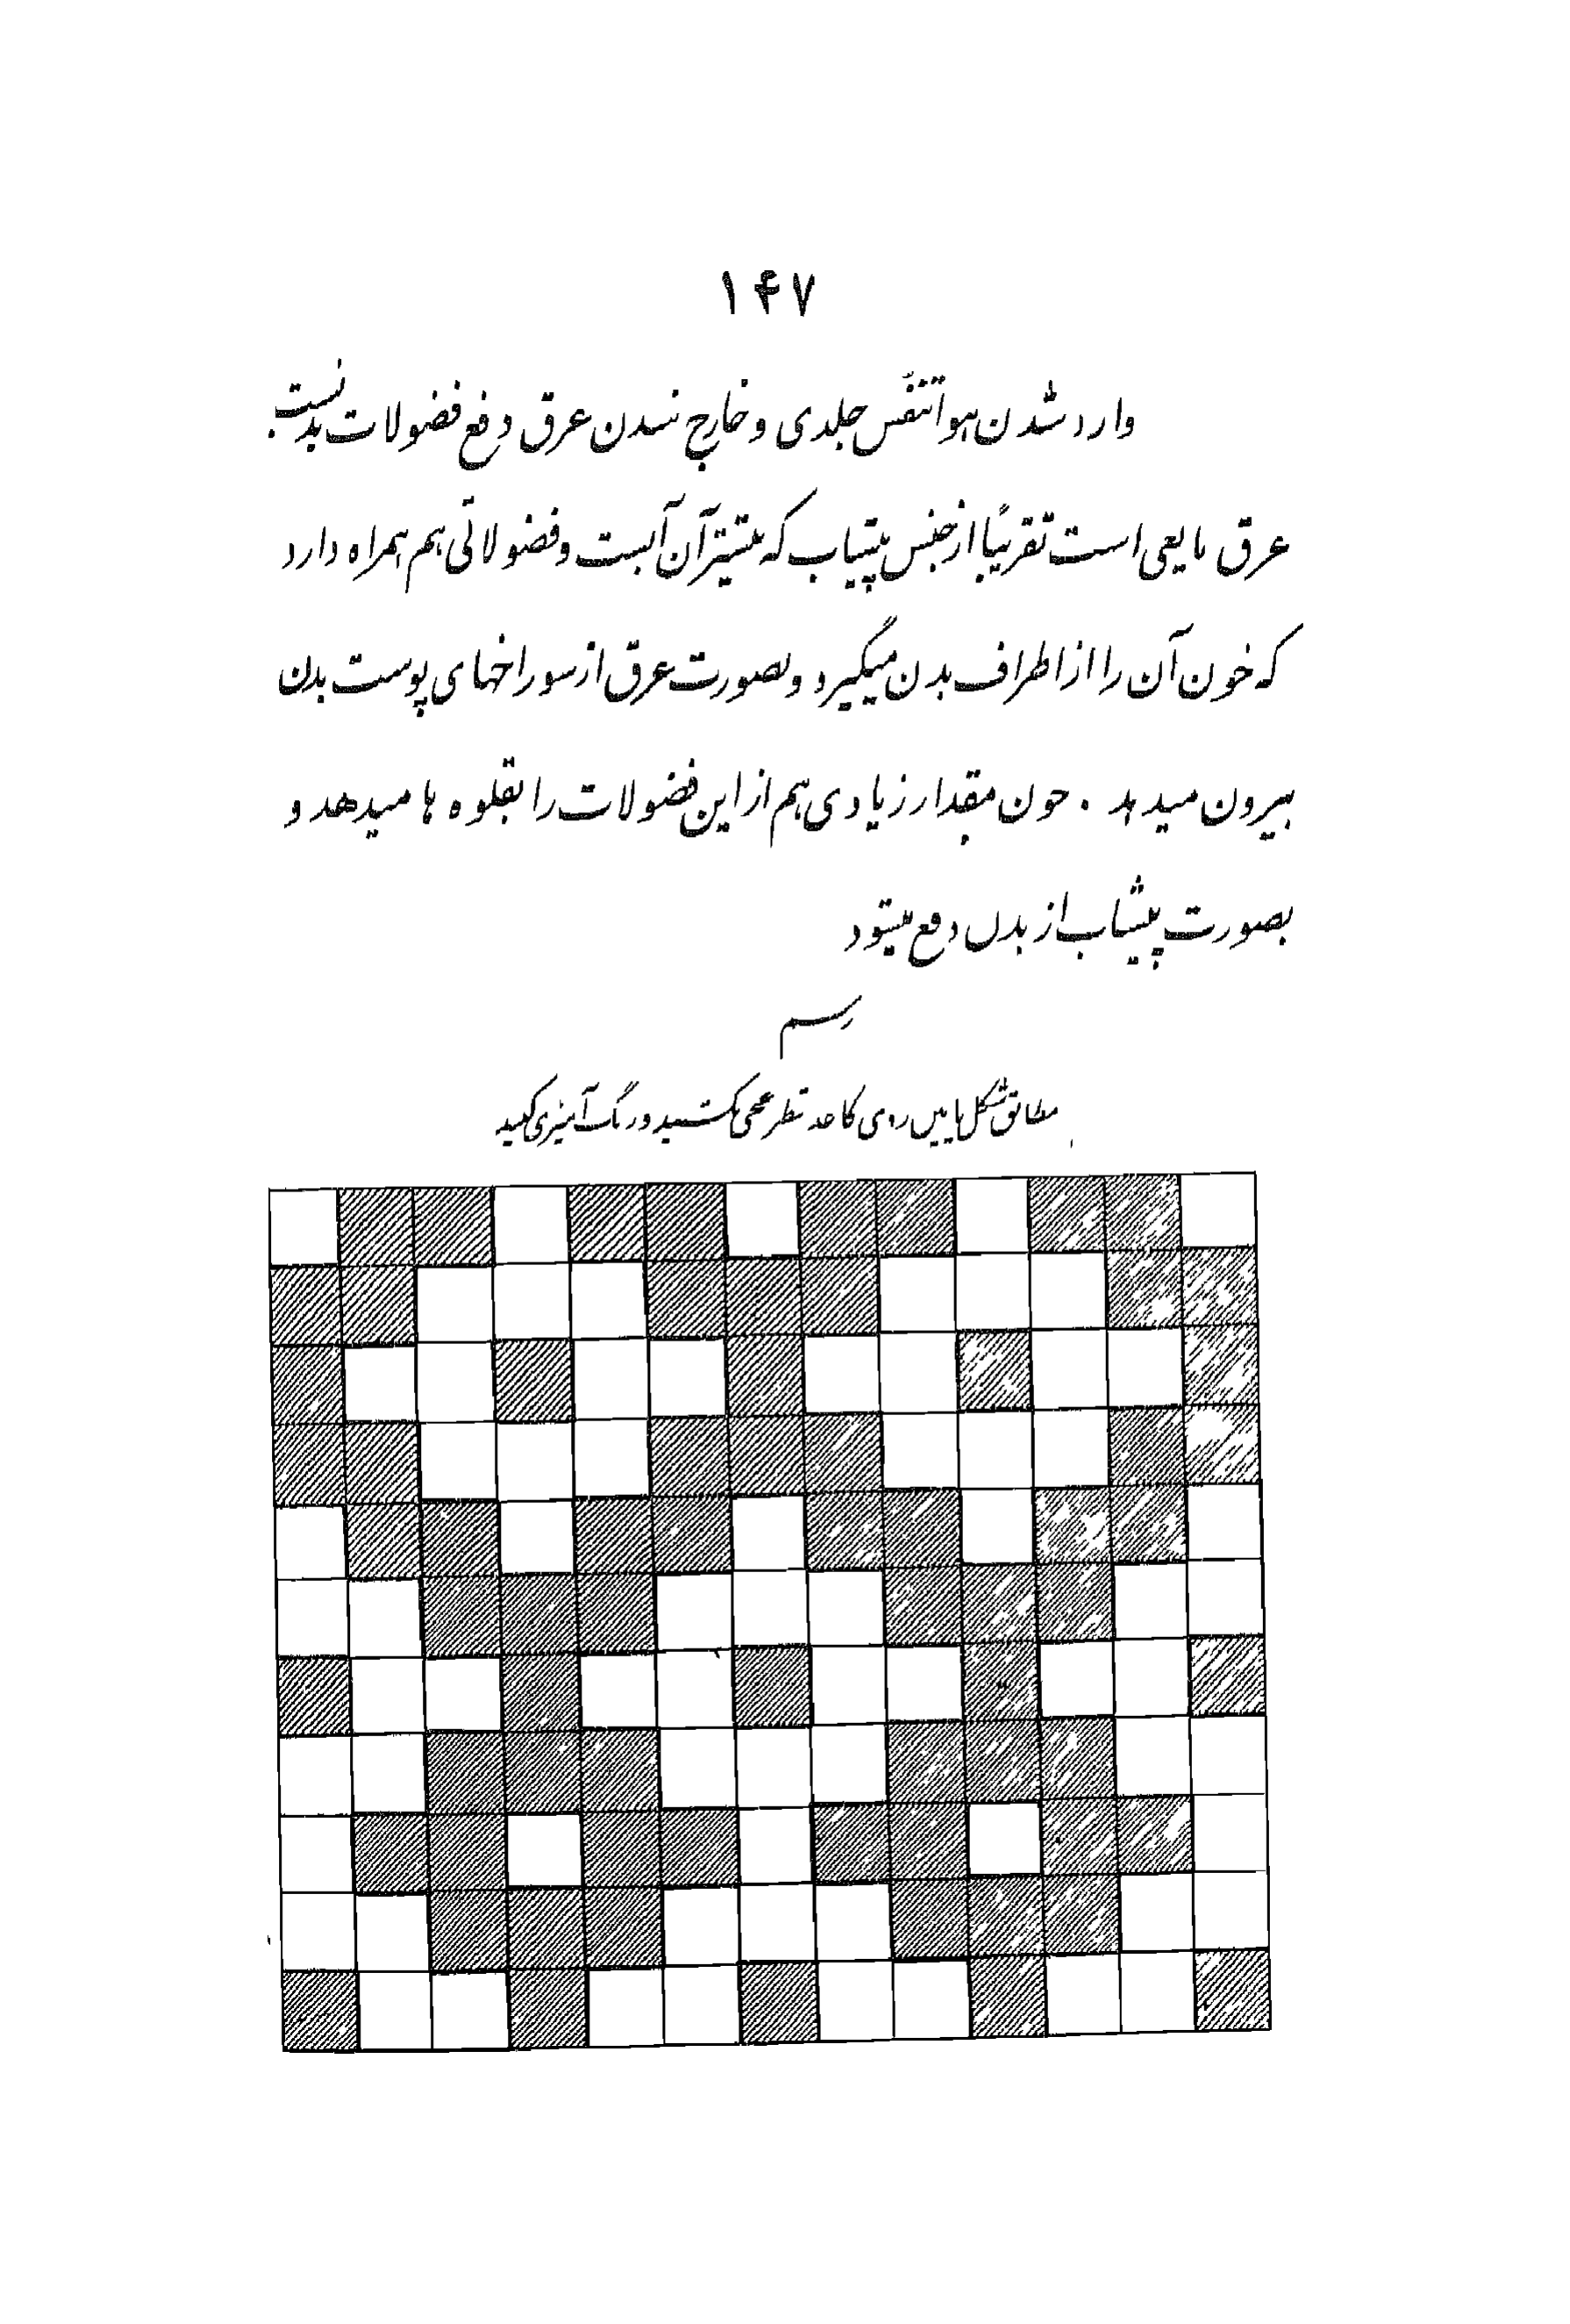 ۱۴۷
وارد شدن هوا تنفّس جلدی و خارج شدن عرق دفع فضولات بدنست
عرق مایعی است تقریبًا از جنس پیشاب که بیشتر آن آبست و فضولاتی هم همراه دارد
که خون آن را از اطراف بدن میگیرد و بصورت عرق از سوراخهای پوست بدن
بیرون میدهد . خون مقدار زیادی هم از این فضولات را بقلوه ها میدهد و
بصورت پیشاب از بدن دفع میشود
رسم
مطابق شکل پایین روی کاغذ شطرنجی بکشید و رنگ آمیزی کنید